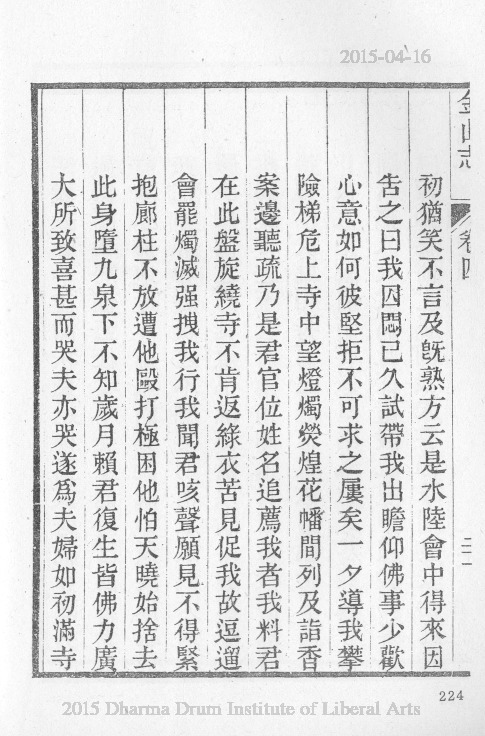 2015-04-16
金山志
卷四
初猶笑不言及旣熟方云是水陸會中得來因
吿之曰我因悶已久試帶我出瞻仰佛事少歡
心意如何彼堅拒不可求之屢矣一夕導我攀
險梯危上寺中望燈燭熒煌花幡間列及詣香
案邊聽疏乃是君官位姓名追薦我者我料君
在此盤旋繞寺不肯返綠衣苦見促我故逗遛
會罷燭滅强拽我行我聞君咳聲願見不得緊
抱廊柱不放遭他毆打極困他怕天曉始捨去
此身墮九泉下不知歲月賴君復生皆佛力廣
大所致喜甚而哭夫亦哭遂爲夫婦如初滿寺
224
2015 Dharma Drum Institute of Liberal Arts